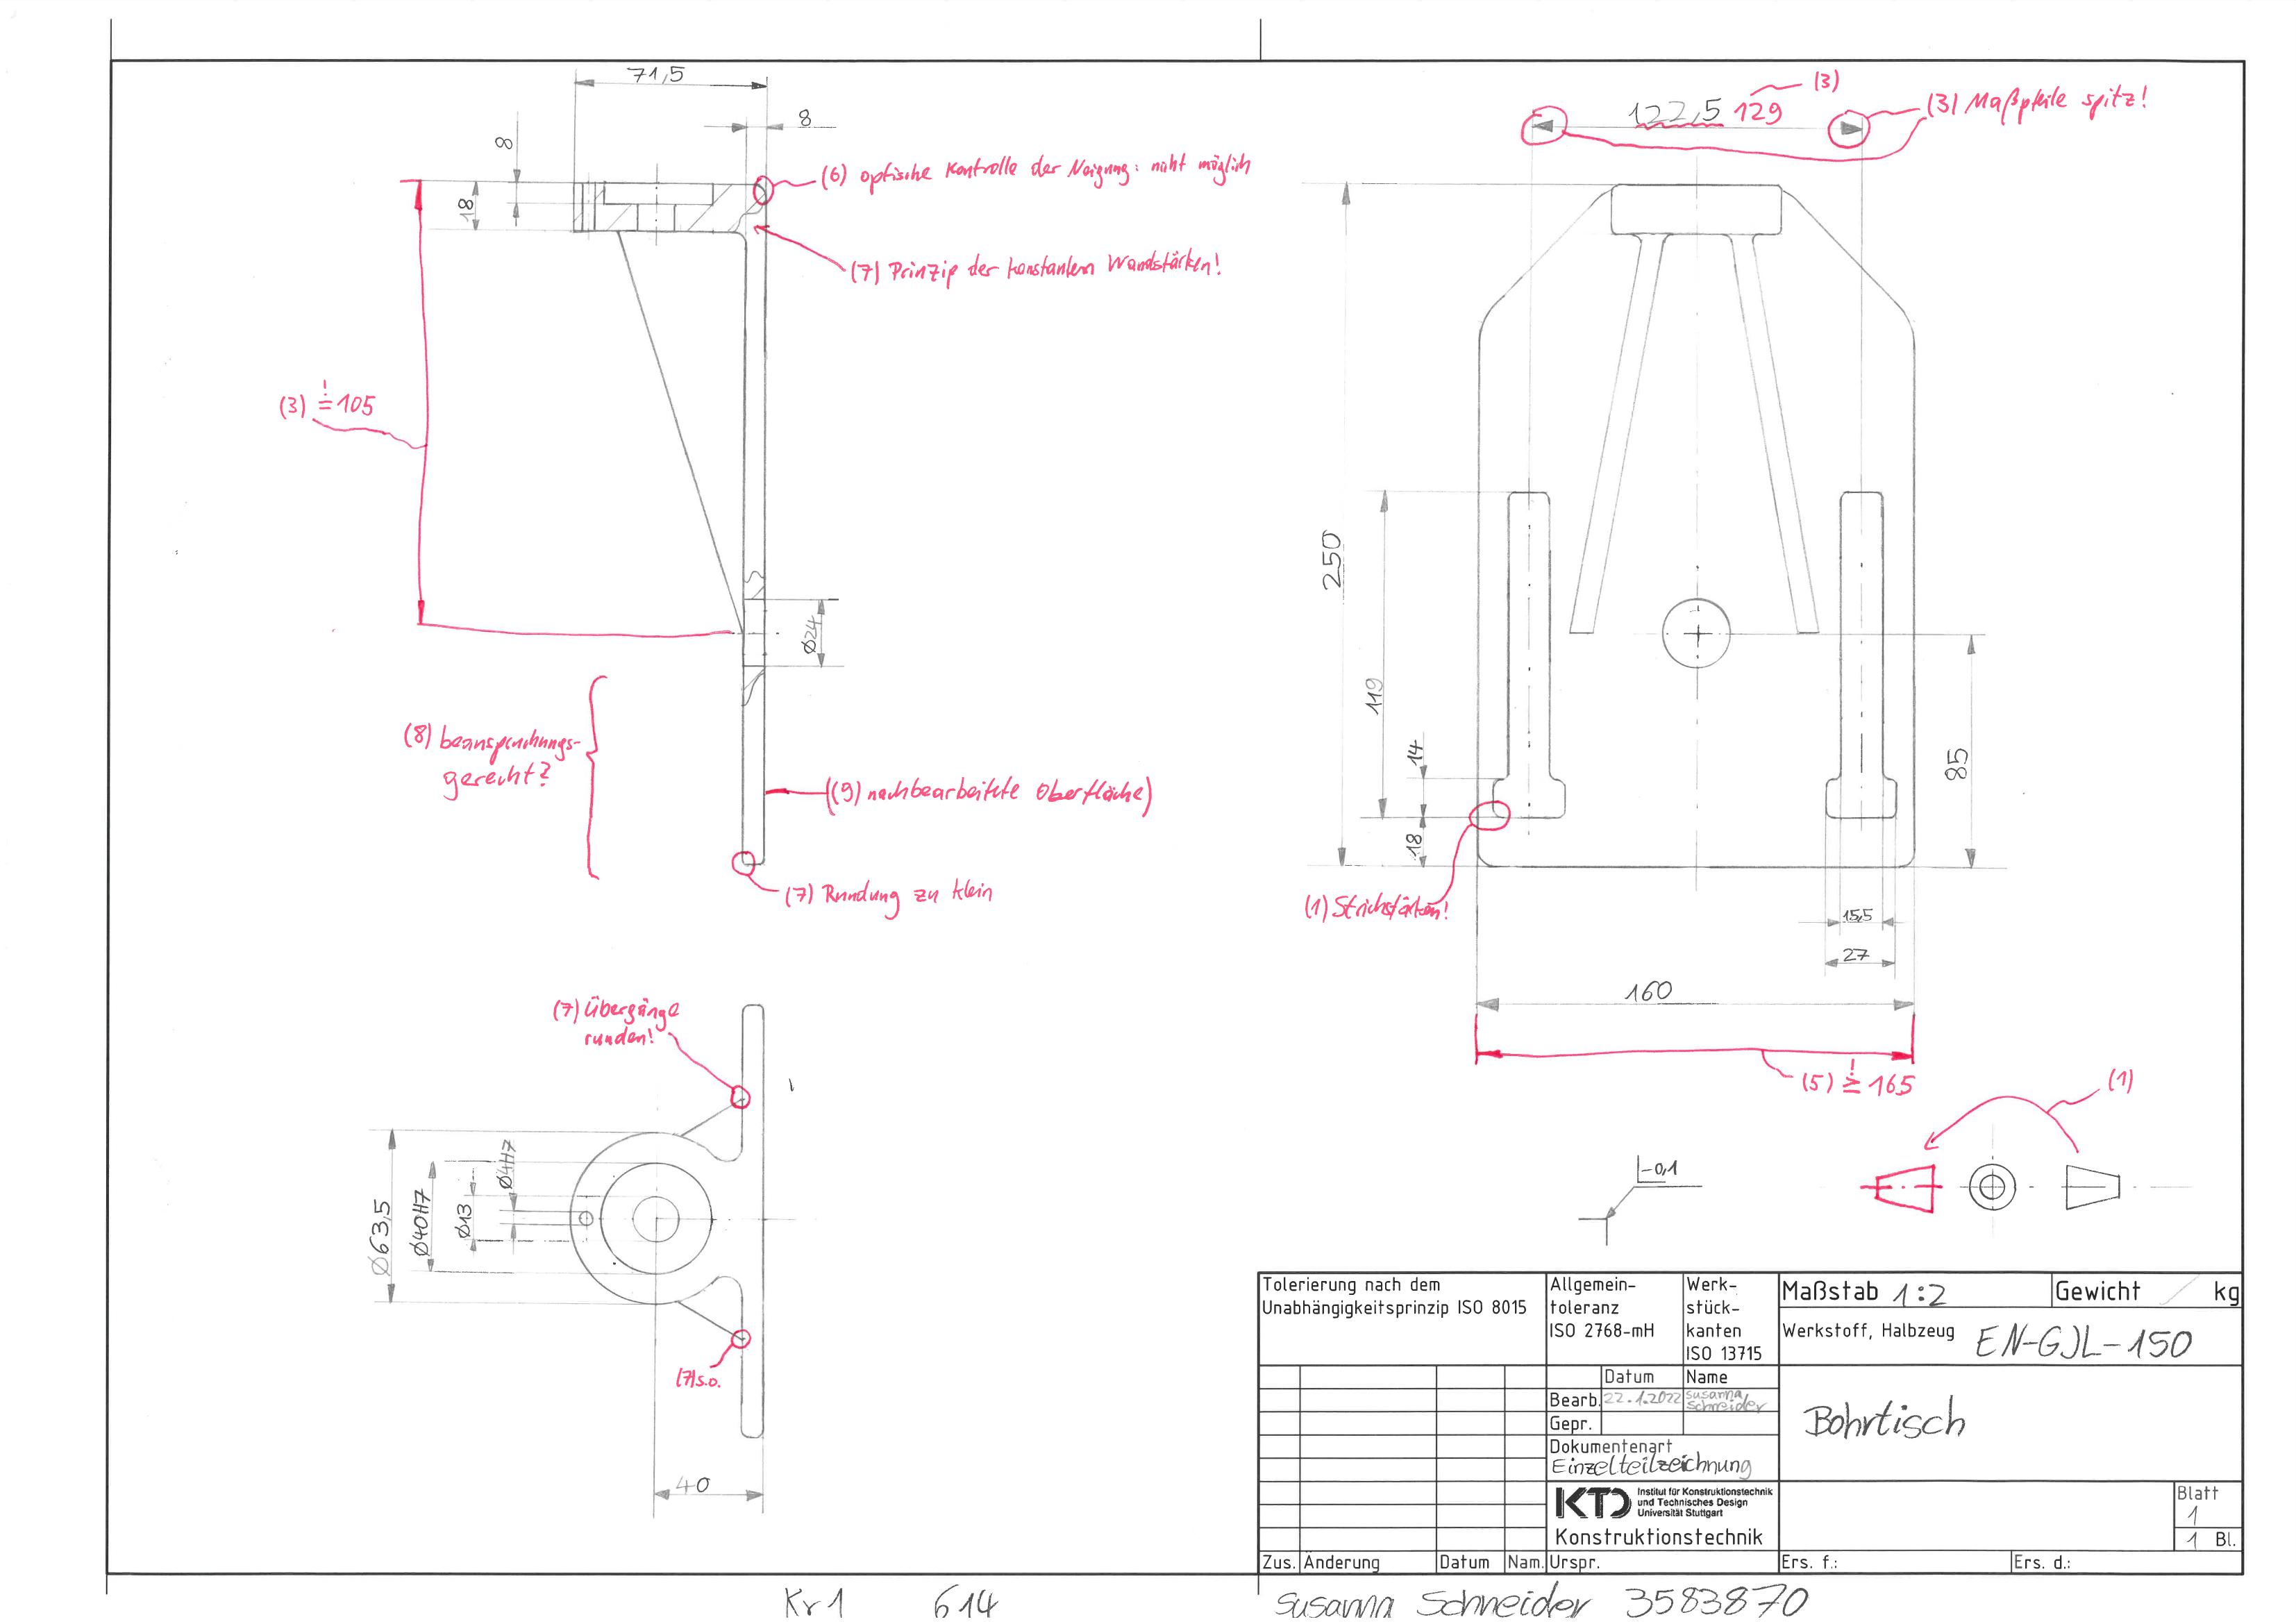 71,5
8
8
18
(6) optische Kontrolle der Neigung: nicht möglich
(7) Prinzip der konstanten Wandstärken!
(3) ! = 105
Ø24
(8) beanspruchungs-
gerecht?
((9) nachbearbeitete Oberfläche)
(7) Rundung zu klein
122,5 129
(3)
(3) Maßpfeile spitz!
250
119
14
18
85
(1) Strichstärken!
15,5
27
160
(5) ! ≥ 165
(1)
(7) Übergänge
runden!
Ø63,5
Ø40H7
Ø13
Ø4H7
(7) s.o.
40
-0,1
Tolerierung nach dem
Unabhängigkeitsprinzip ISO 8015
Allgemein-
toleranz
ISO 2768-mH
Werk-
stück-
kanten
ISO 13715
Maßstab 1:2
Gewicht / kg
Werkstoff, Halbzeug EN-GJL-150
Datum Name
Bearb. 22.1.2022 Susanna Schneider
Gepr.
Dokumentenart
Einzelteilzeichnung
Bohrtisch
KTD Institut für Konstruktionstechnik
und Technisches Design
Universität Stuttgart
Konstruktionstechnik
Blatt
1
1 Bl.
Zus. Änderung Datum Nam. Urspr. Ers. f.: Ers. d.:
Kr1 614 Susanna Schneider 3583870